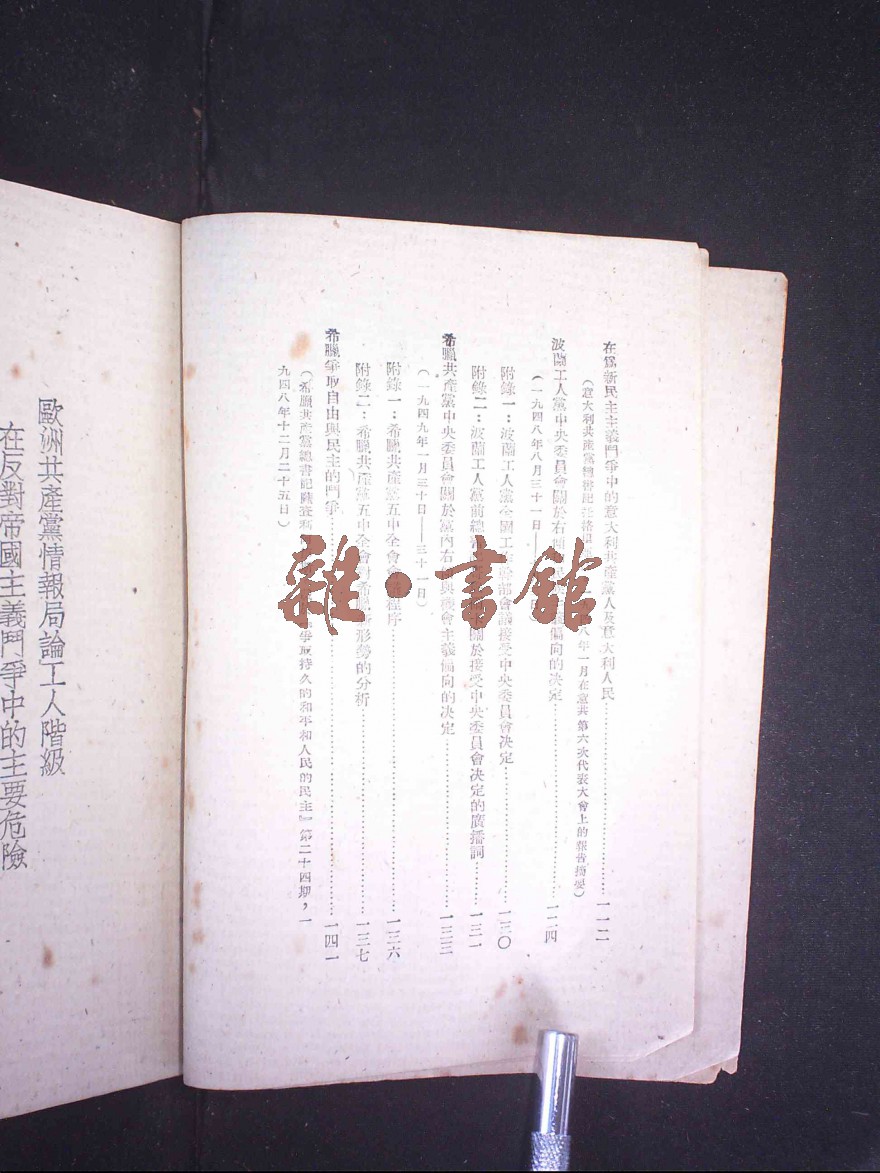 在爲新民主主義鬥爭中的意大利共產黨人及意大利人民………一一二
（意大利共產黨總書記 八年一月在意共第六次代表大會上的報告摘要）
波蘭工人黨中央委員會關於右傾 偏向的决定………一二四
（一九四八年八月三十一日——
附錄一：波蘭工人黨全國工 幹部會議接受中央委員會决定………一三〇
附錄二：波蘭工人黨前總書 關於接受中央委員會决定的廣播詞………一三一
希臘共產黨中央委員會關於黨內右 與機會主義偏向的决定………一三三
（一九四九年一月三十日——三十一日）
附錄一：希臘共產黨五中全會 程序………一三六
附錄二：希臘共產黨五中全會 希臘 形勢的分析………一三七
希臘爭取自由與民主的鬥爭………一四一
（希臘共產黨總書記 爭取持久的和平和人民的民主』第二十四期，一
九四八年十二月二十五日）
歐洲共產黨情報局論工人階級
在反對帝國主義鬥爭中的主要危險
雜·書館